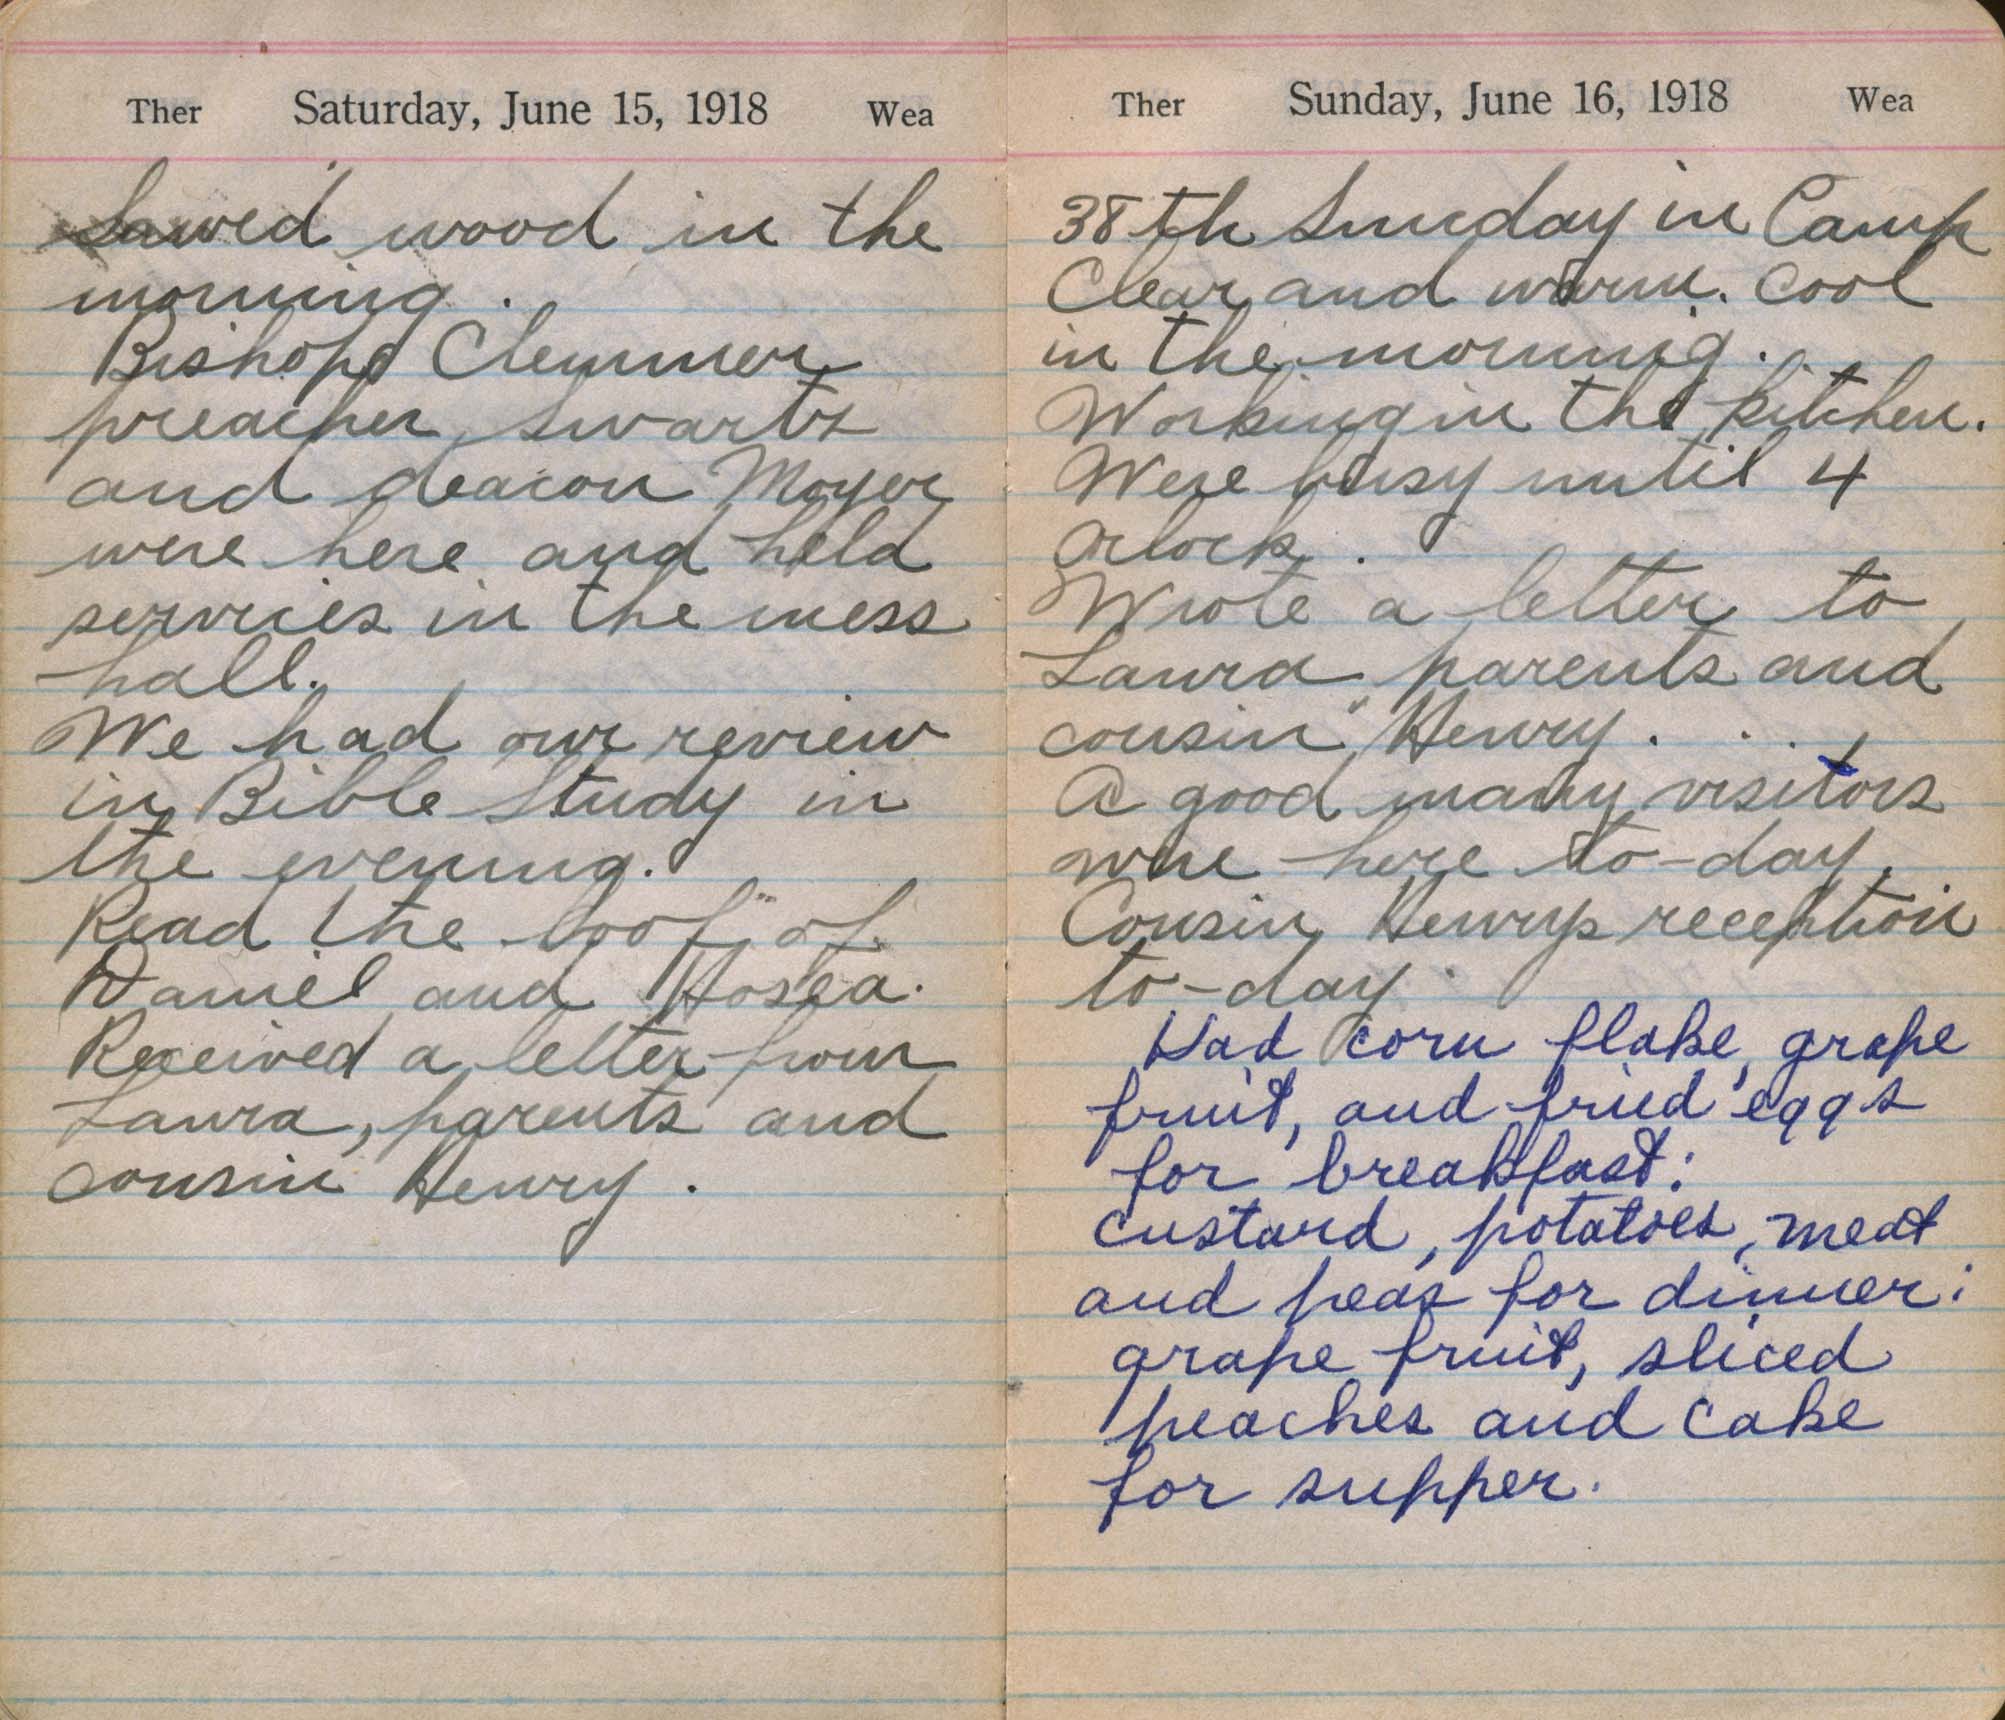 Ther Saturday, June 15, 1918 Wea
Sawed wood in the
morning.
Bishop Clemmer
preacher Swartz
and deacon Moyer
were here and held
services in the mess
hall.
We had our review
in Bible Study in
the evening.
Read the book of
Daniel and Hosea.
Received a letter from
Laura, parents and
cousin Henry.
Ther Sunday, June 16, 1918 Wea
38th Sunday in Camp
Clear and warm. Cool
in the morning.
Working in the kitchen.
Were busy until 4
oclock.
Wrote a letter to
Laura parents and
cousin Henry.
A good many visitors
were here to-day.
Cousin Henrys reception
to-day.
Had corn flake, grape
fruit, and fried eggs
for breakfast;
custard, potatoes, meat
and peas for dinner;
grape fruit, sliced
peaches and cake
for supper.